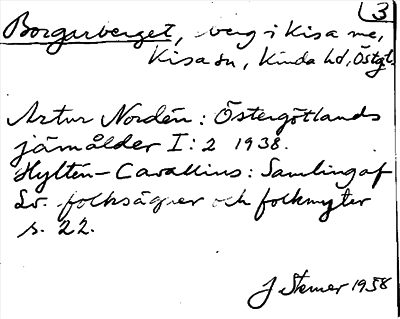 3
Borgarberget, berg i Kisa me,
Kisa sn, Kinda hd, Östgtl.
Artur Nordén: Östergötlands
järnålder I:2 1938.
Hyltén-Cavallius: Samling af
Sv. folksägner och folkmyter
s. 22.
J Stemer 1958